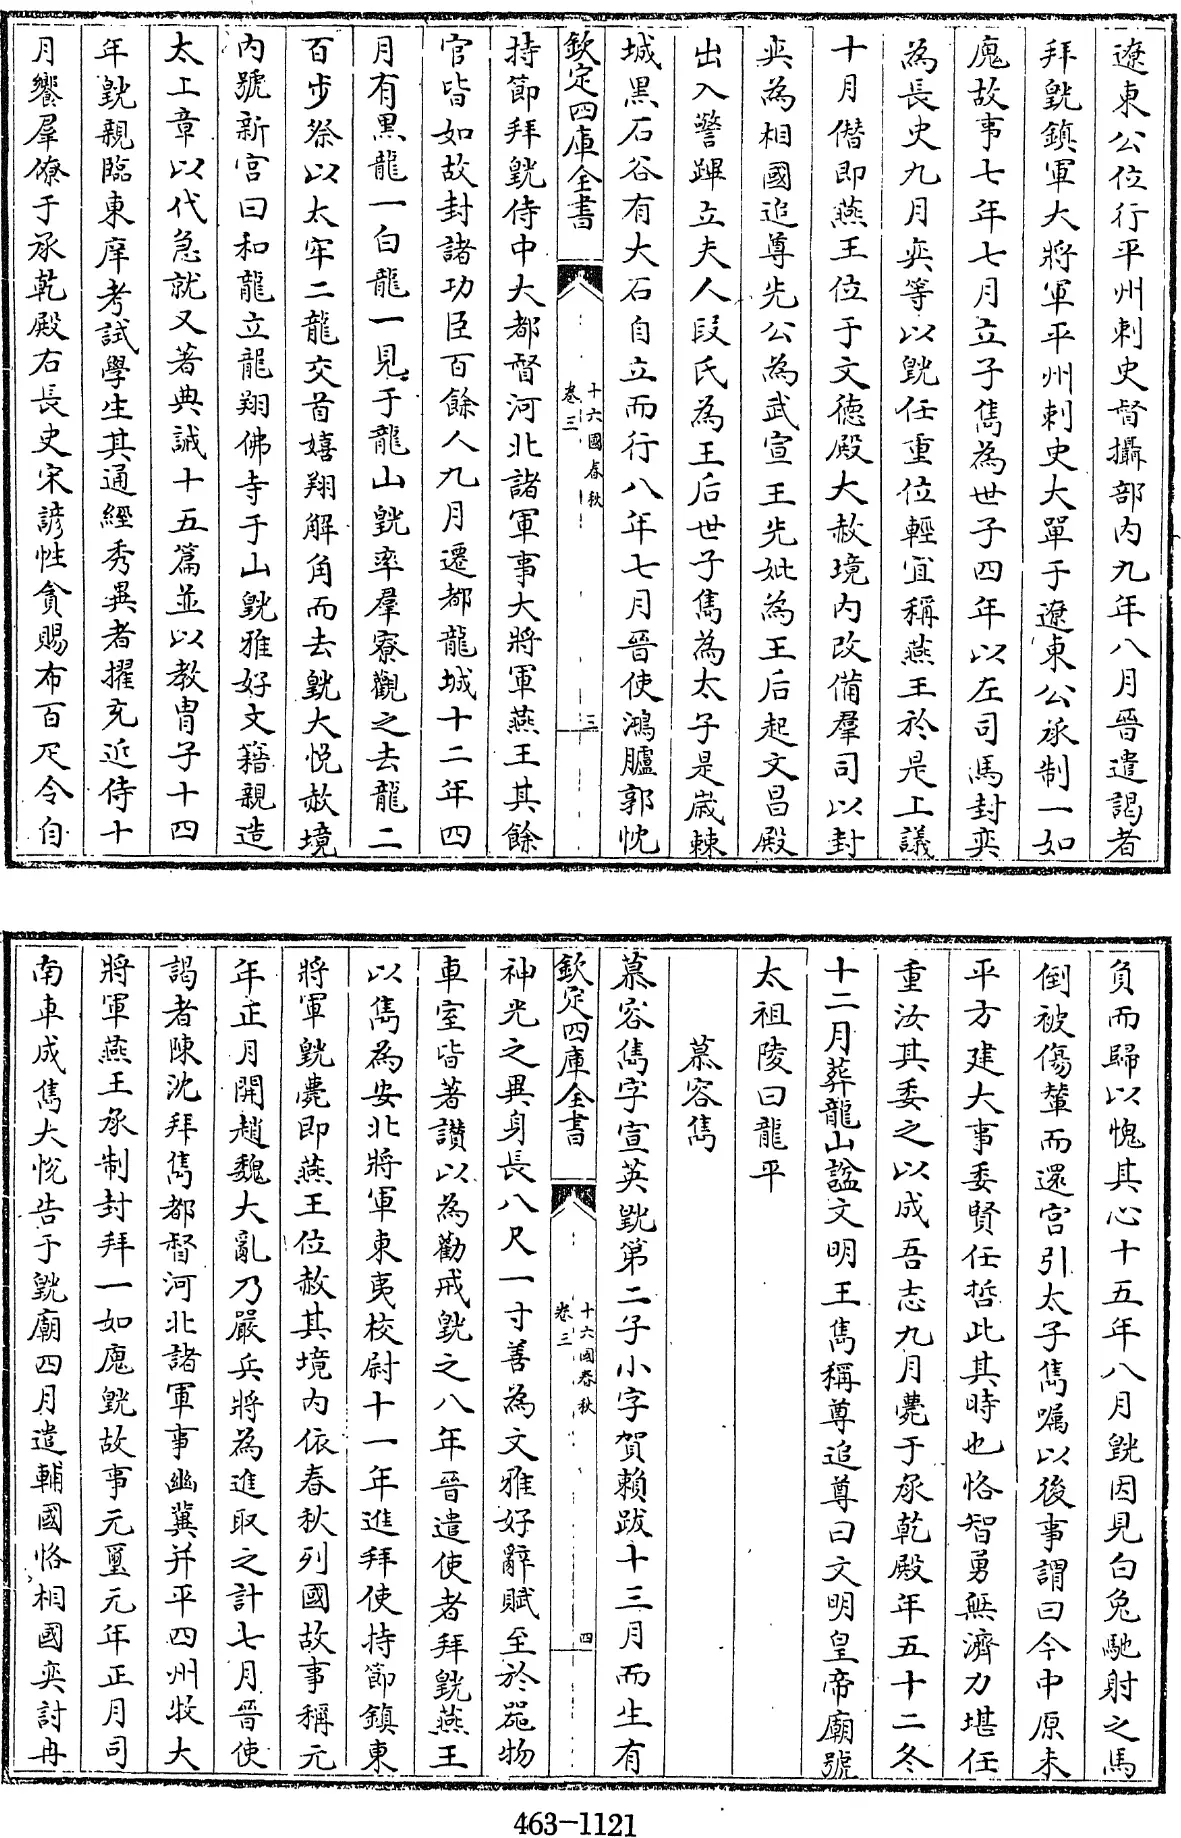 遼東公位行平州刺史督攝部内九年八月晉遣謁者
拜皝鎮軍大將軍平州刺史大單于遼東公承制一如
廆故事七年七月立子雋為世子四年以左司馬封奕
為長史九月奕等以皝任重位輕宜稱燕王於是上議
十月僭即燕王位于文徳殿大赦境内改備羣司以封
奕為相國追尊先公為武宣王先妣為王后起文昌殿
出入警蹕立夫人段氏為王后世子雋為太子是嵗棘
城黒石谷有大石自立而行八年七月晉使鴻臚郭忱
欽定四庫全書
十六國春秋
卷三
三
持節拜皝侍中大都督河北諸軍事大將軍燕王其餘
官皆如故封諸功臣百餘人九月遷都龍城十二年四
月有黒龍一白龍一見于龍山皝率羣寮觀之去龍二
百步祭以太牢二龍交首嬉翔解角而去皝大悦赦境
内號新宫曰和龍立龍翔佛寺于山皝雅好文籍親造
太上章以代急就又著典誡十五篇並以教冑子十四
年皝親臨東庠考試學生其通經秀異者擢充近侍十
月饗羣僚于承乾殿右長史宋諺性貪賜布百尺令自
負而歸以愧其心十五年八月皝因見白兔馳射之馬
倒被傷輦而還宫引太子雋囑以後事謂曰今中原未
平方建大事委賢任哲此其時也恪智勇無濟力堪任
重汝其委之以成吾志九月薨于承乾殿年五十二冬
十二月葬龍山諡文明王雋稱尊追尊曰文明皇帝廟號
太祖陵曰龍平
慕容雋
慕容雋字宣英皝第二子小字賀賴跋十三月而生有
欽定四庫全書
十六國春秋
卷三
四
神光之異身長八尺一寸善為文雅好辭賦至於器物
車室皆著讃以為勸戒皝之八年晉遣使者拜皝燕王
以雋為安北將軍東夷校尉十一年進拜使持節鎮東
將軍皝薨即燕王位赦其境内依春秋列國故事稱元
年正月開趙魏大亂乃嚴兵將為進取之計七月晉使
謁者陳沈拜雋都督河北諸軍事幽冀并平四州牧大
將軍燕王承制封拜一如廆皝故事元璽元年正月司
南車成雋大悦告于皝廟四月遣輔國恪相國奕討冉
463-1121